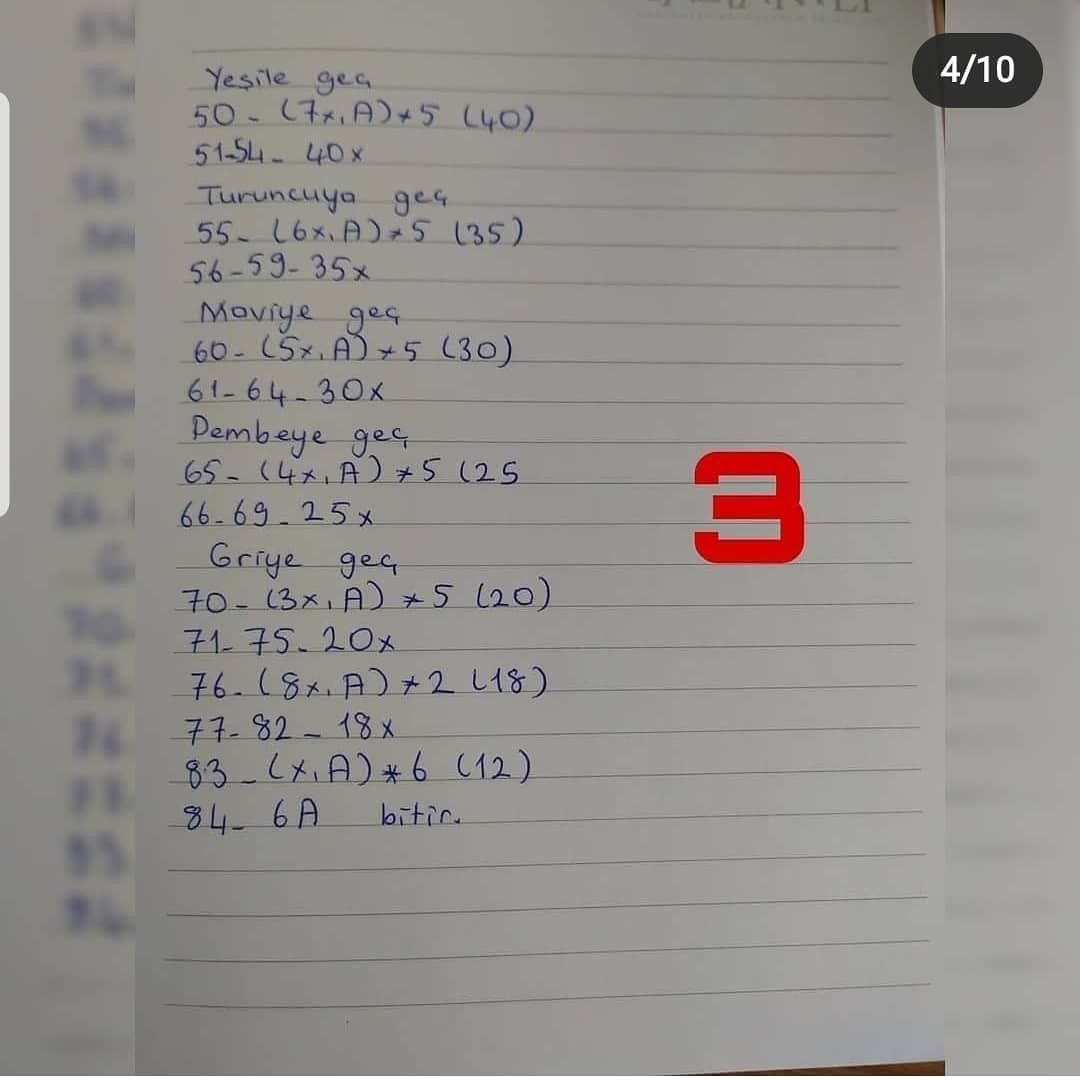 4/10
Yeşile geç
50 - (7x, A)*5 (40)
51-54 - 40x
Turuncuya geç
55 - (6x, A)*5 (35)
56-59 - 35x
Maviye geç
60 - (5x, A)*5 (30)
61-64 - 30x
Pembeye geç
65 - (4x, A)*5 (25
66-69 - 25x
Griye geç
70 - (3x, A)*5 (20)
71-75 - 20x
76 - (8x, A)*2 (18)
77-82 - 18x
83 - (x, A)*6 (12)
84 - 6A bitir.
3